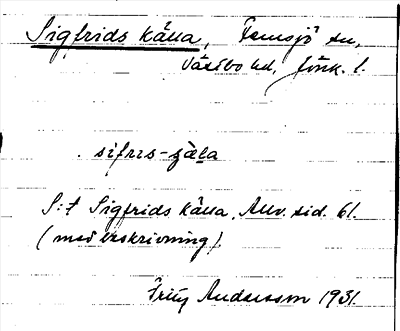 Sigfrids källa, Femsjö sn,
Västbo hd, Jönk. l.
sifris-ɡäla
S:t Sigfrids källa, Allv. sid. 61.
(med beskrivning)
Frity Andersson 1931.